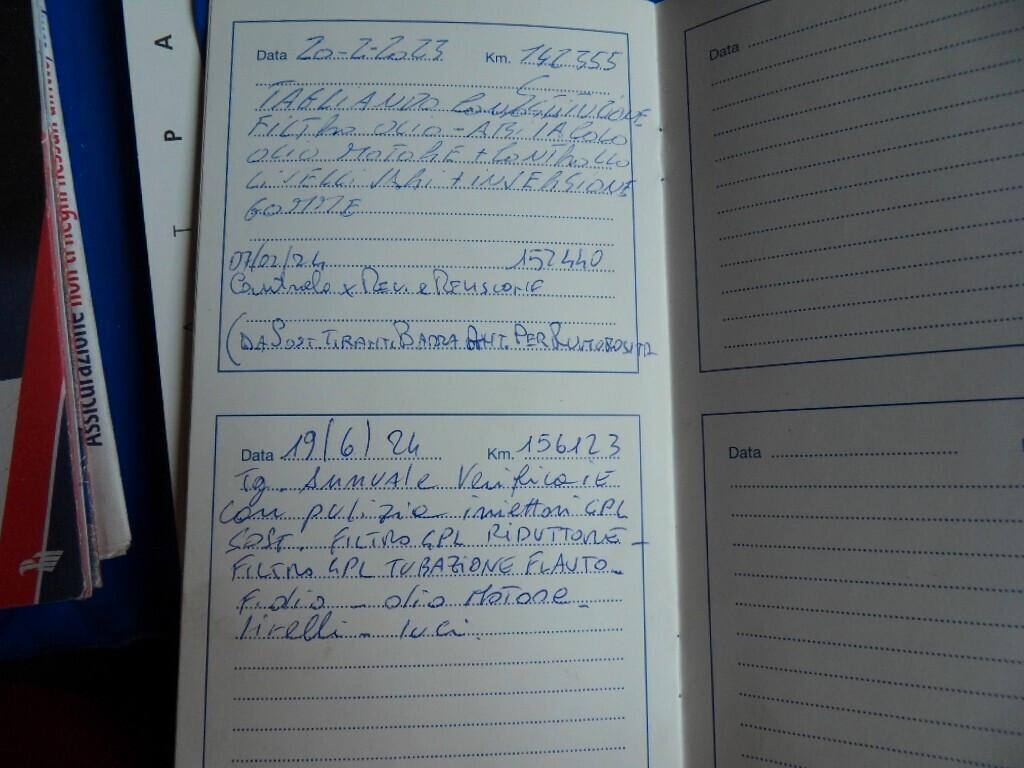 Data 20-2-2023 Km. 142355
TAGLIANDO CON SOSTITUZIONE
FILTRO OLIO - ARIA
OLIO MOTORE + CONTROLLO
LIVELLI VARI + INVERSIONE
GOMME
07/02/24 152440
Controllo x Rev. e REVISIONE
(DA SOST. TIRANTI BARRA ANT. PER
Data 19/6/24 Km. 156123
Tg. ANNUALE Verifica IE
Con pulizia iniettori GPL
SOST. FILTRO GPL RIDUTTORE -
FILTRO GPL TUBAZIONE FLAUTO -
F. olio - olio Motore -
livelli - luci.
Data
Data
A P T
Assicurazione non ti neghi nessun